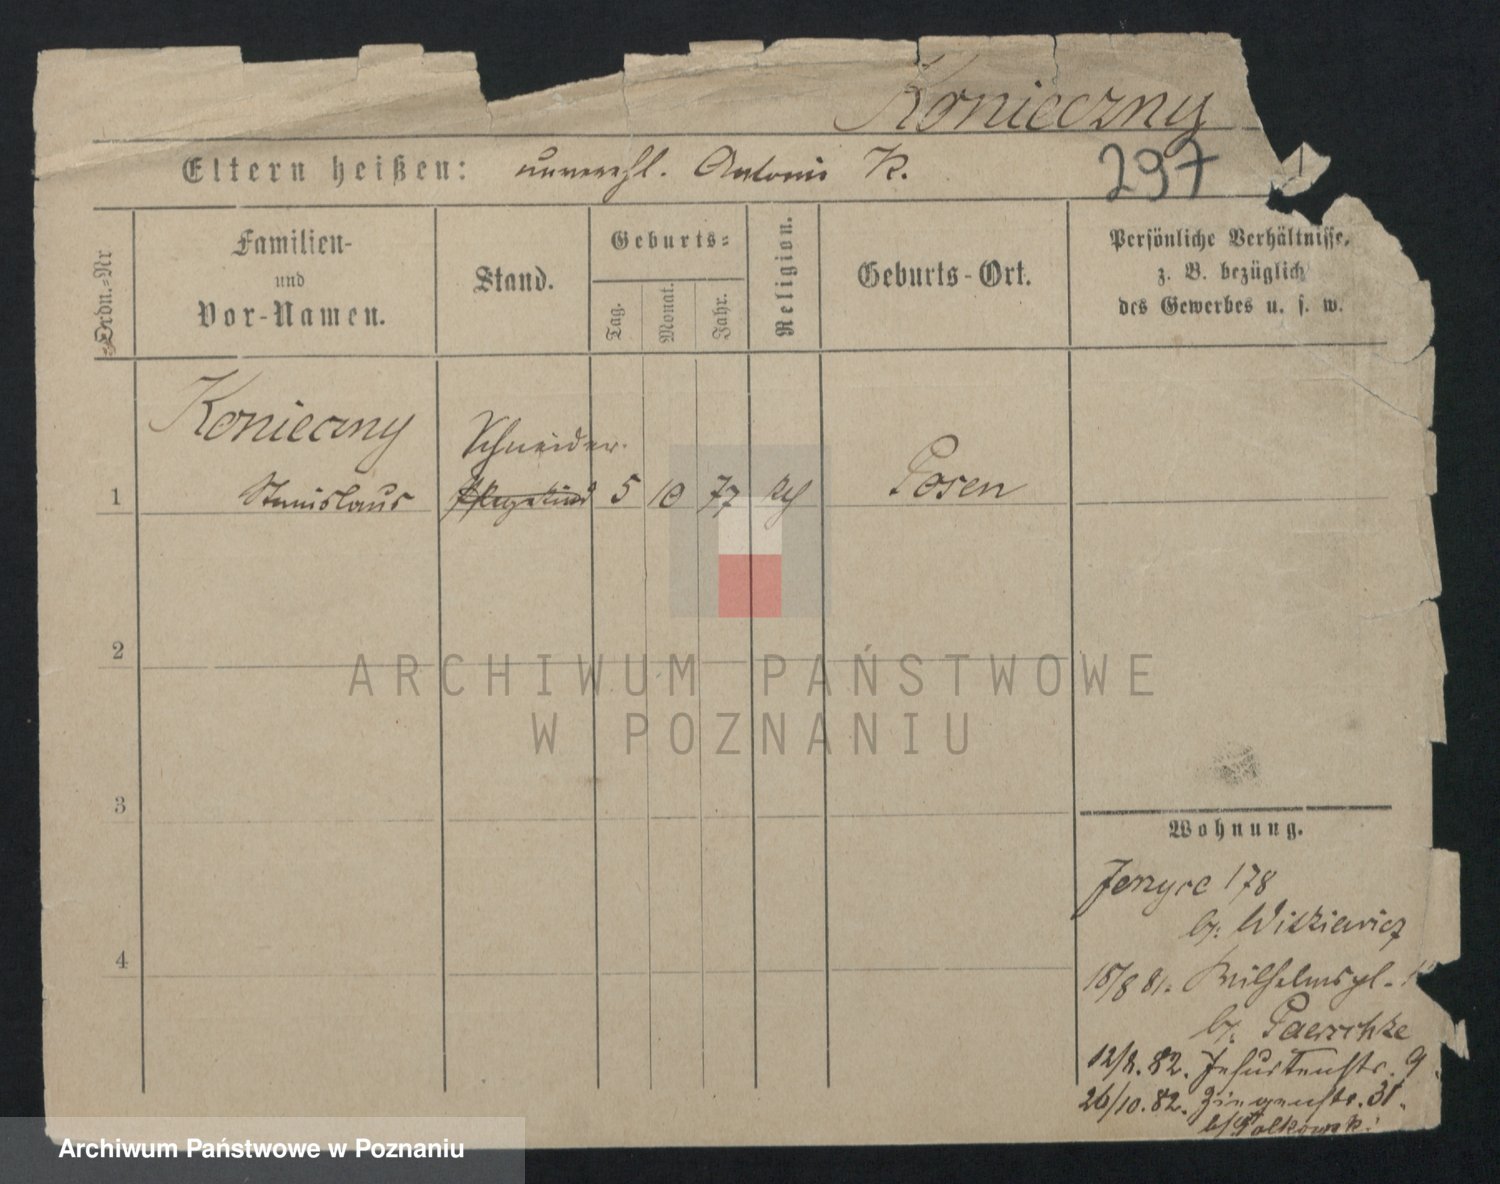 Konieczny
Eltern heißen: unverehl. Antonie K. 297
Ordn.-Nr
Familien-
und
Vor-Namen.
Stand.
Geburts-
Tag.
Monat.
Jahr.
Religion.
Geburts-Ort.
Persönliche Verhältnisse,
z. B. bezüglich
des Gewerbes u. s. w.
Konieczny
Schneider.
1 Stanislaus Pflegekind 5 10 77 Posen
2
ARCHIWUM PAŃSTWOWE
W POZNANIU
3
Wohnung.
Jerzyce 178
b. Witkiewicz
4
18/8 81. Wilhelmspl.
b.
12/8. 82. Jesuitenstr. 9.
26/10. 82. Ziegenstr. 31.
b/
Archiwum Państwowe w Poznaniu